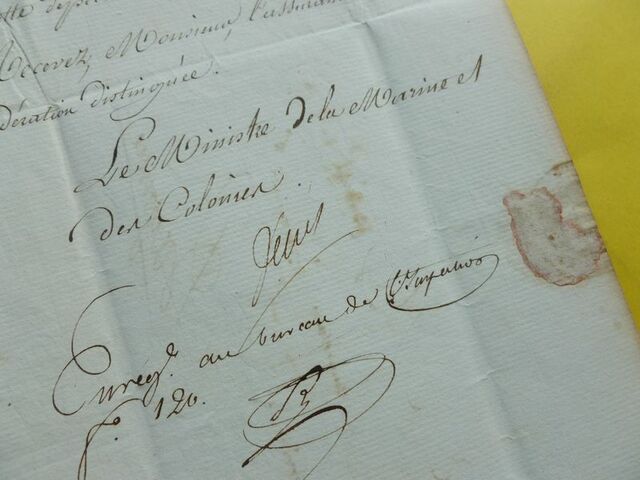 Recevez, Monsieur, l'assuran
dération distinguée.
Le Ministre de la Marine et
des Colonies.
Enregé. au bureau de
fo. 120.